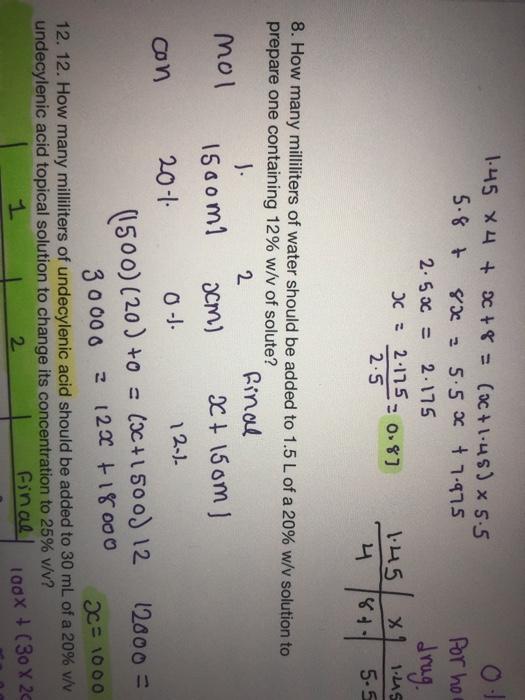 1.45 x 4 + x + 8 = (x+1.45) x 5.5
5.8 + 8x = 5.5x + 7.975
2.5x = 2.175
x = 2.175 = 0.87
2.5
0.1
Per h
drug.
1.45 | x | 1.45
4 | 8 | 5.5
8. How many milliliters of water should be added to 1.5 L of a 20% w/v solution to
prepare one containing 12% w/v of solute?
1. 2 Final
mol 1500ml xml x+150ml
con 20% 0% 12%
(1500)(20)+0 = (x+1500)12
30000 = 12x + 18000
12000 =
x = 1000
12. 12. How many milliliters of undecylenic acid should be added to 30 mL of a 20% v/v
undecylenic acid topical solution to change its concentration to 25% v/v?
1 | 2 | Final
100x + (30x20